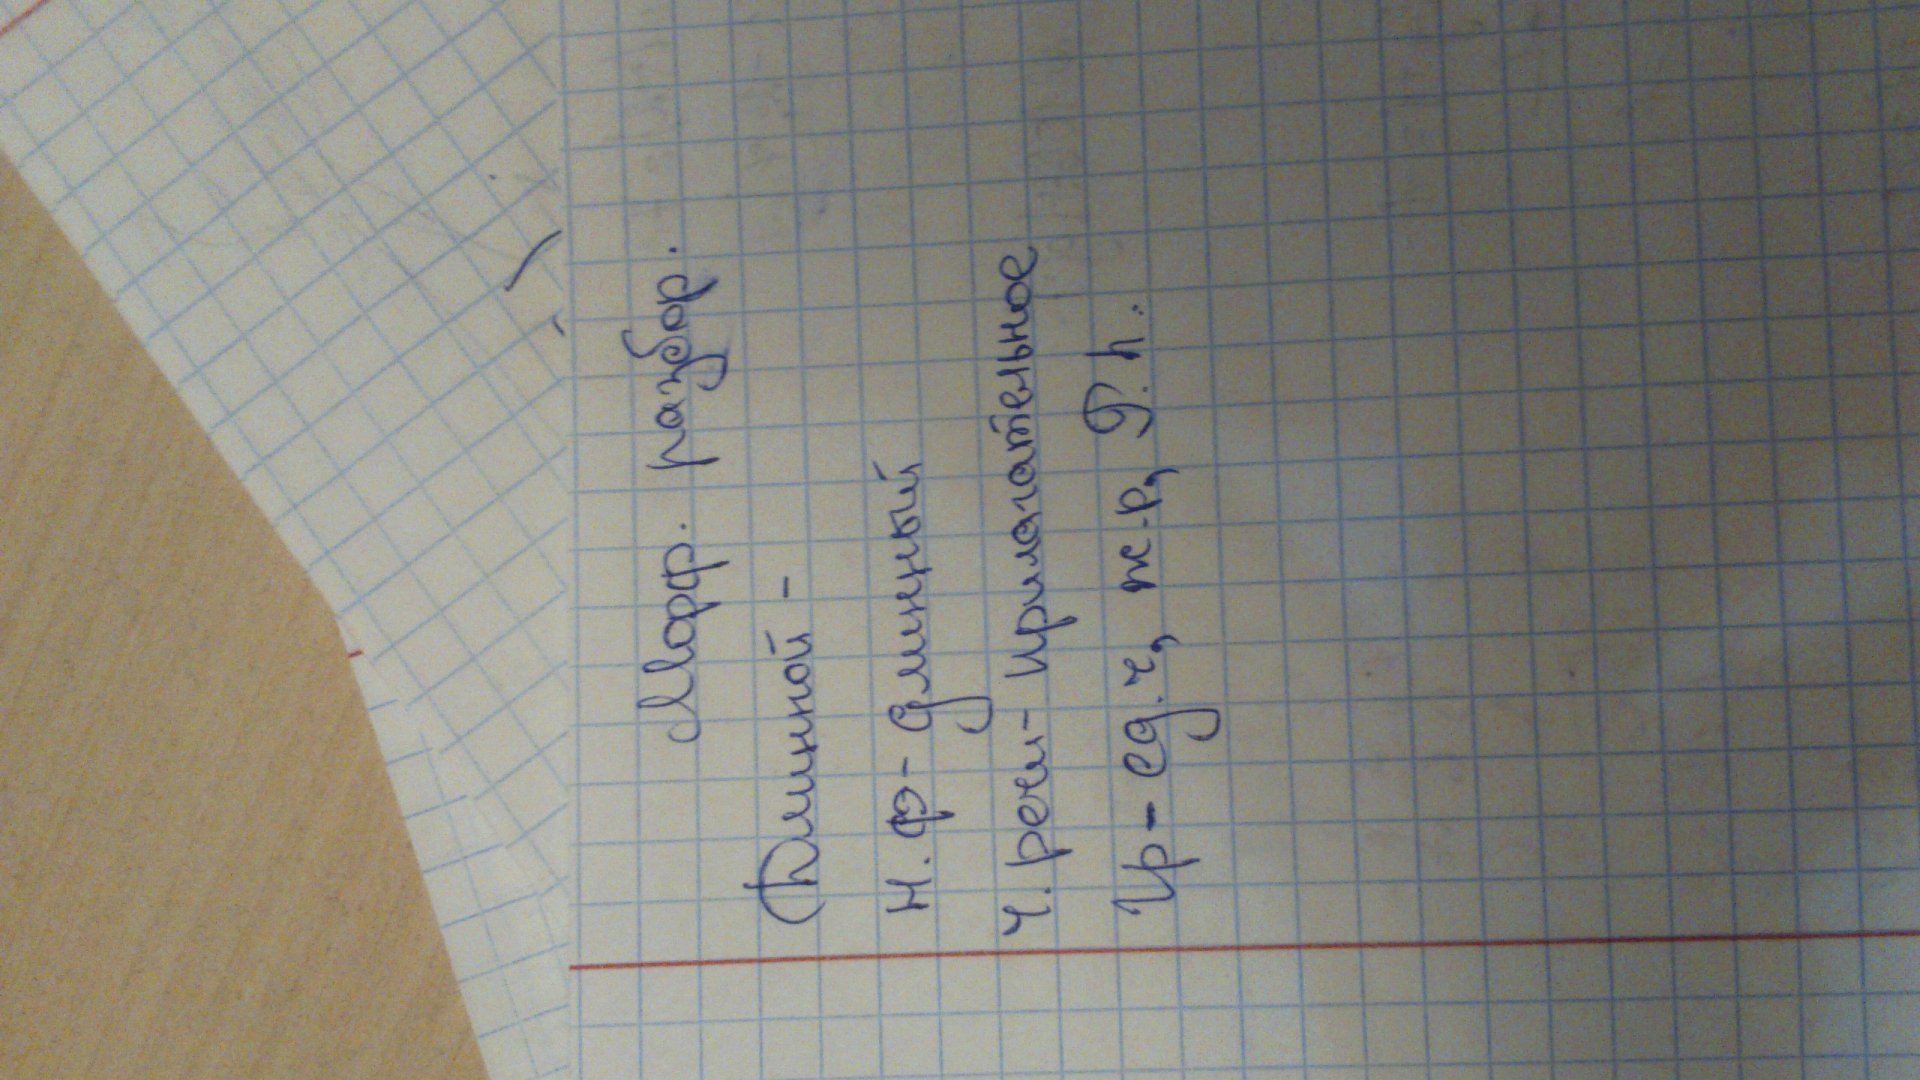 Морф. разбор.
Длинной -
Н. ф - длинный
Ч. речи - прилагательное
Пр - ед. ч, ж.р, Р. п.